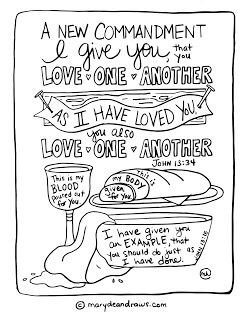 A NEW COMMANDMENT
I give you, that you
LOVE ONE ANOTHER
AS I HAVE LOVED YOU,
you also
LOVE ONE ANOTHER
JOHN 13:34
This is my
BLOOD
poured out
for you.
This is
my BODY
given
for you.
I have given you
an EXAMPLE, that
you should do just as
I have done.
JOHN 13:15
© marydeandraws.com